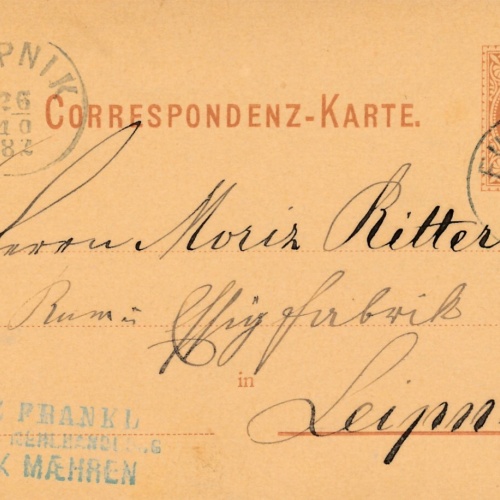 PNIK
26
10
82
CORRESPONDENZ-KARTE.
Herrn Moriz Ritter
Rum & Essigfabrik
in
Leipn
FRANKL
MEHLHANDLUNG
K MÆHREN